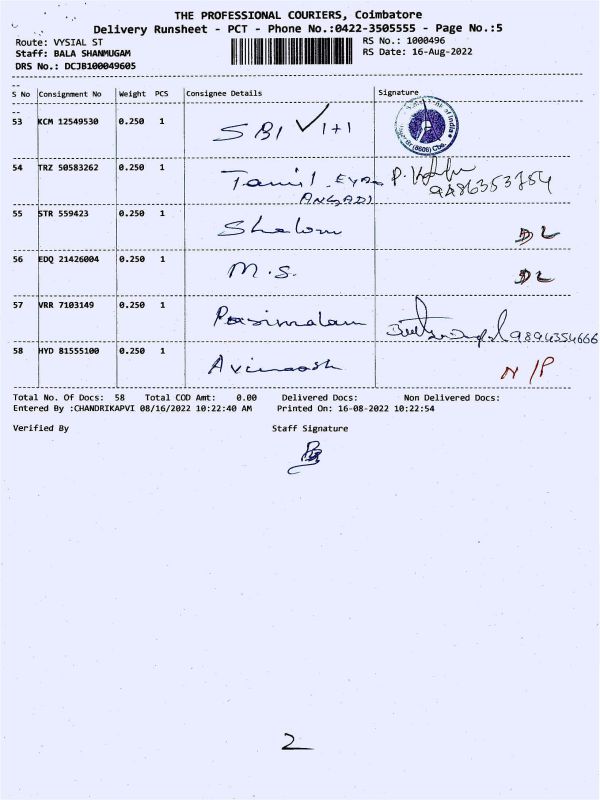 THE PROFESSIONAL COURIERS, Coimbatore
Delivery Runsheet - PCT - Phone No.:0422-3505555 - Page No.:5
Route: VYSIAL ST
RS No.: 1000496
Staff: BALA SHANMUGAM
RS Date: 16-Aug-2022
DRS No.: DCJB100049605
S No Consignment No Weight PCS Consignee Details Signature
53 KCM 12549530 0.250 1 SBI ✓ 1+1
54 TRZ 50583262 0.250 1 Tamil
ANGADI
55 STR 559423 0.250 1 Shalom DL
56 EDQ 21426004 0.250 1 M.S. DL
57 VRR 7103149 0.250 1 Pasimalam 9894354666
58 HYD 81555100 0.250 1 Avinaash N/P
Total No. Of Docs: 58 Total COD Amt: 0.00 Delivered Docs: Non Delivered Docs:
Entered By :CHANDRIKAPVI 08/16/2022 10:22:40 AM Printed On: 16-08-2022 10:22:54
Verified By Staff Signature
2